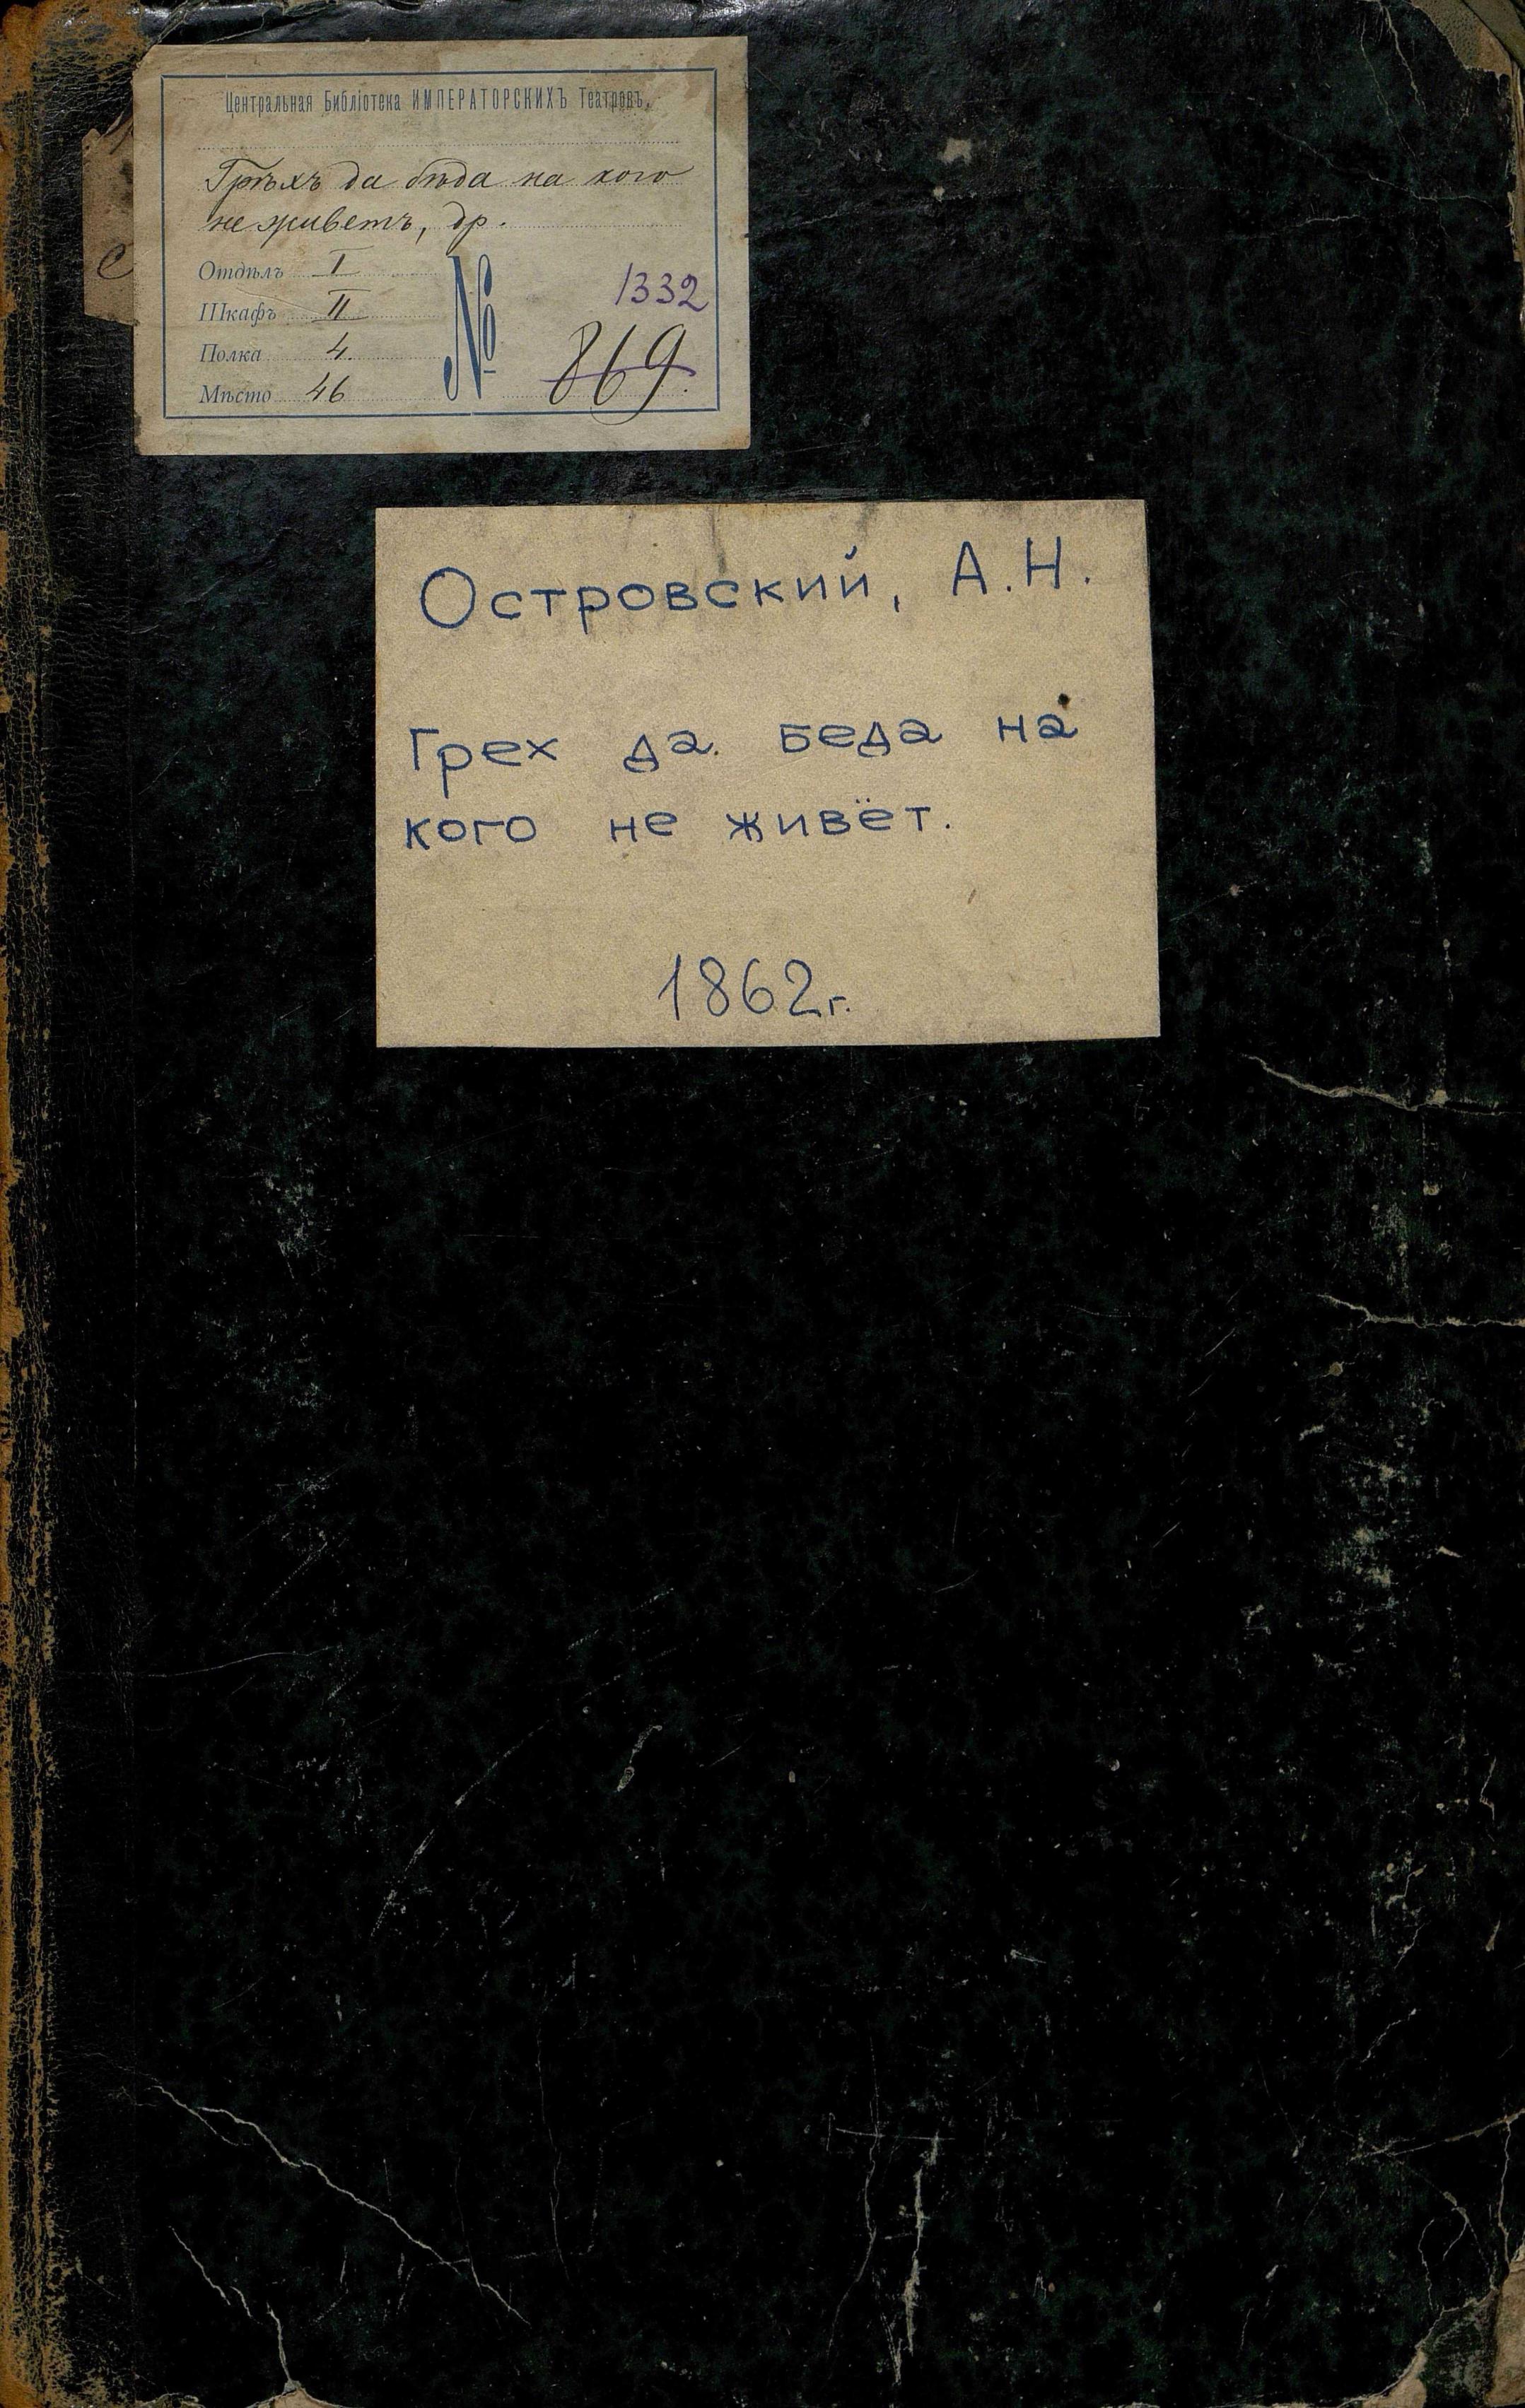 Центральная Библіотека ИМПЕРАТОРСКИХЪ Театровъ.
Грѣхъ да бѣда на кого
не живетъ, др.
Отдѣлъ I
Шкафъ II
Полка 4
Мѣсто 46
№
1332
869
с
Островский, А.Н.
Грех да беда на
кого не живёт.
1862г.